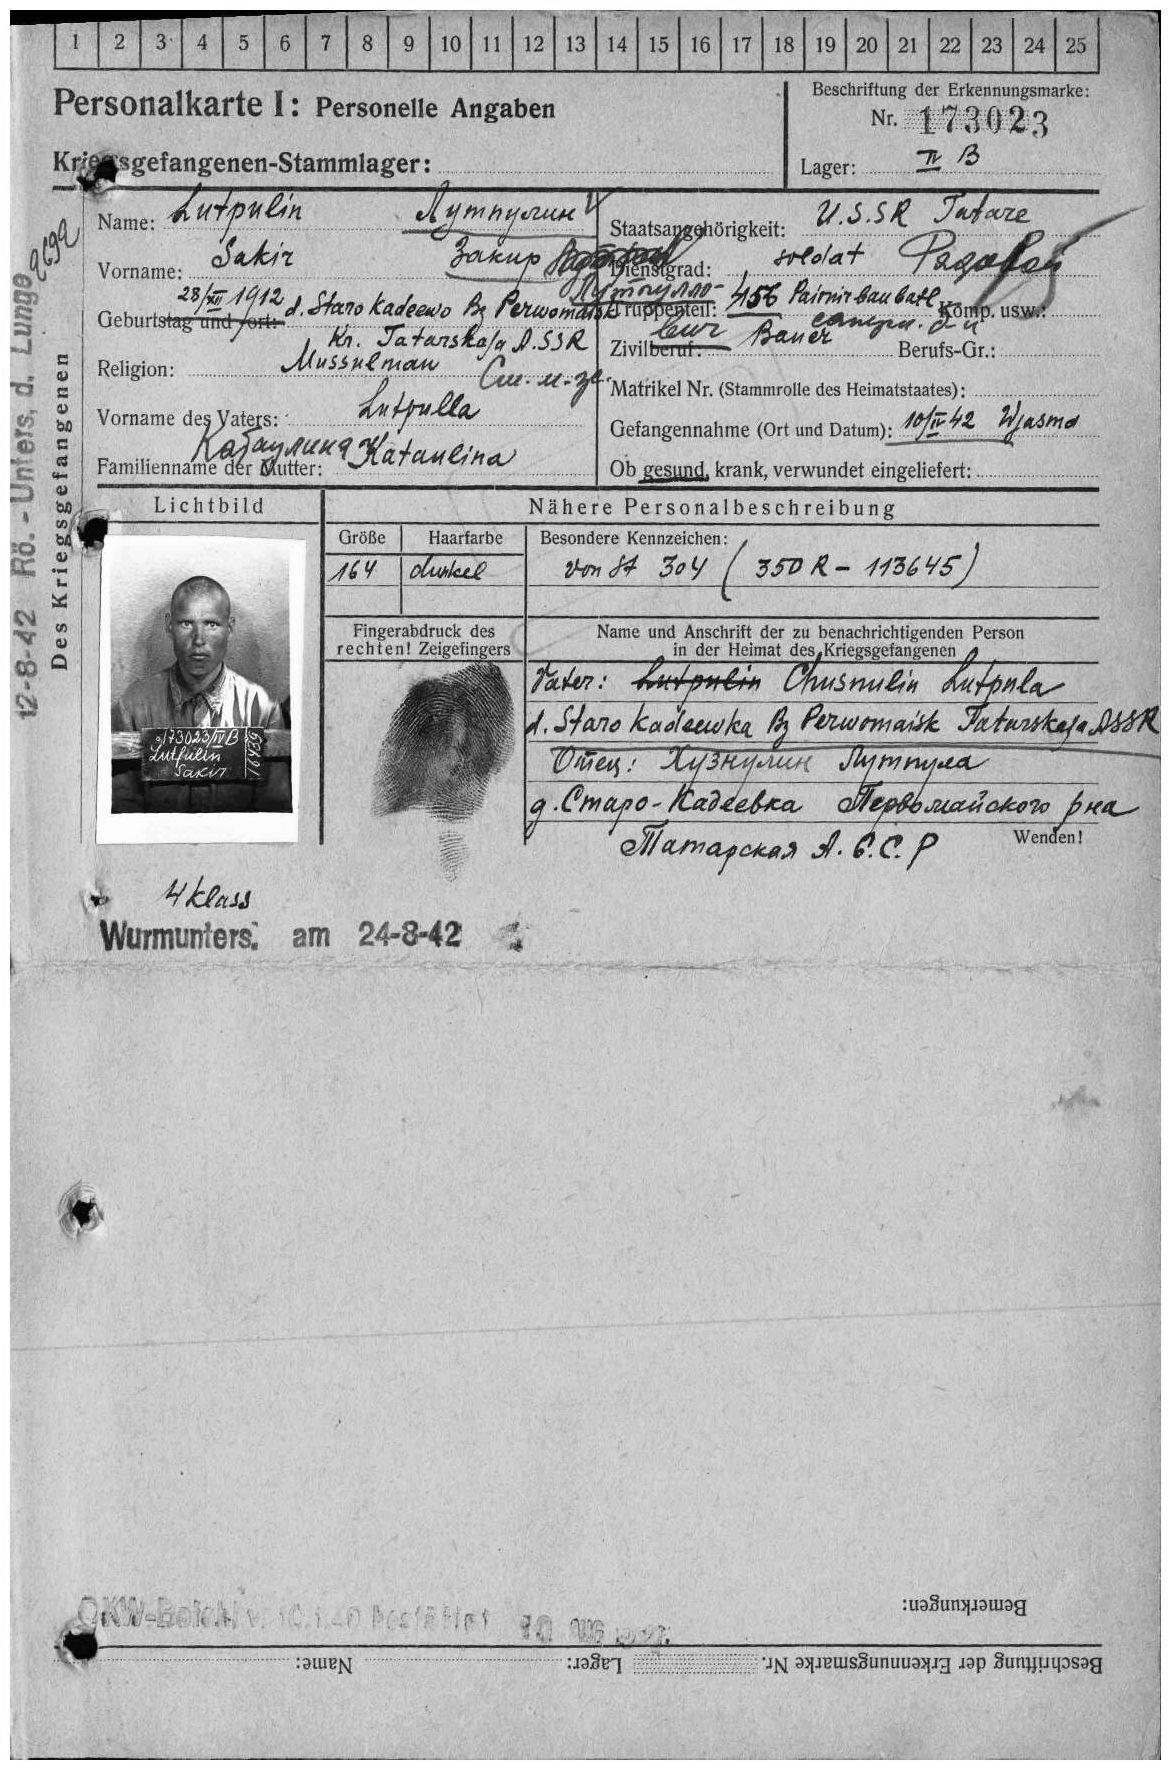 1 2 3 4 5 6 7 8 9 10 11 12 13 14 15 16 17 18 19 20 21 22 23 24 25
Personalkarte I: Personelle Angaben
Beschriftung der Erkennungsmarke:
Nr. 173023
Kriegsgefangenen-Stammlager:
Lager: IV B
Des Kriegsgefangenen
12-8-42 Rö.-Unters. d. Lunge
Name: Lutpulin Лутпулин
Vorname: Sakir Закир
Лутпулло-
Geburtstag und -ort: 28/XII 1912 d. Staro Kadeewo Bz Perwomaisk
Kr. Tatarskaja A.SSR
Religion: Mussulman
Vorname des Vaters: Lutpulla
Катаулина
Familienname der Mutter: Kataulina
Staatsangehörigkeit: U.S.SR Tatare
Dienstgrad: soldat Рядовой
Truppenteil: 456 Paionirbaubatl Komp. usw.:
Zivilberuf: Bauer Berufs-Gr.:
Matrikel Nr. (Stammrolle des Heimatstaates):
Gefangennahme (Ort und Datum): 10/IV 42 Wjasma
Ob gesund, krank, verwundet eingeliefert:
Lichtbild
Nähere Personalbeschreibung
Größe Haarfarbe Besondere Kennzeichen:
164 dunkel von St 304 (350 R - 113645)
Fingerabdruck des
rechten! Zeigefingers
Name und Anschrift der zu benachrichtigenden Person
in der Heimat des Kriegsgefangenen
Vater: Lutpulin Chusnulin Lutpula
d. Staro Kadeewka Bz Perwomaisk Tatarskaja ASSR
Отец: Хузнулин Лутпула
д. Старо-Кадеевка Первомайского рна
Татарская А.С.С.Р
Wenden!
173023 IV B
Lutpulin
Sakir
4 klass
Wurmunters. am 24-8-42
Bemerkungen:
Beschriftung der Erkennungsmarke Nr. Lager: Name: